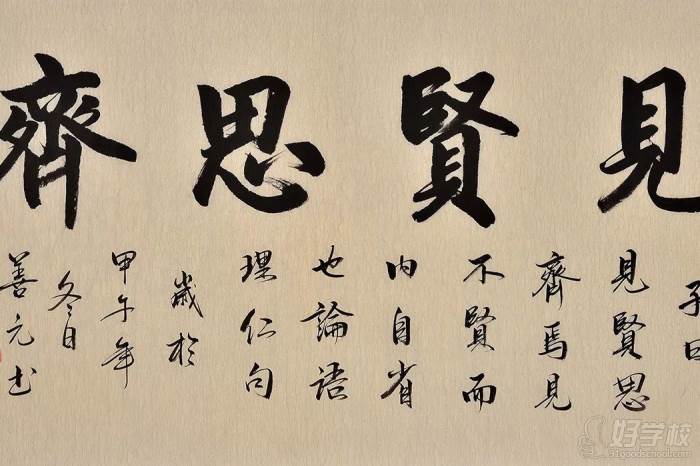 見賢思齊
子曰
見賢思
齊焉見
不賢而
内自省
也論語
理仁句
歲於
甲午年
冬日
善元书
好学校
91goodschool.com